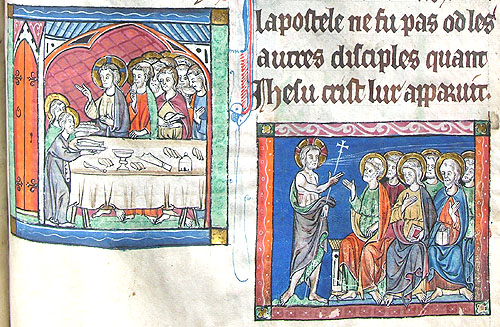 lapostele ne fu pas od les
autres disciples quant
Jhesu crist lur apparuit.